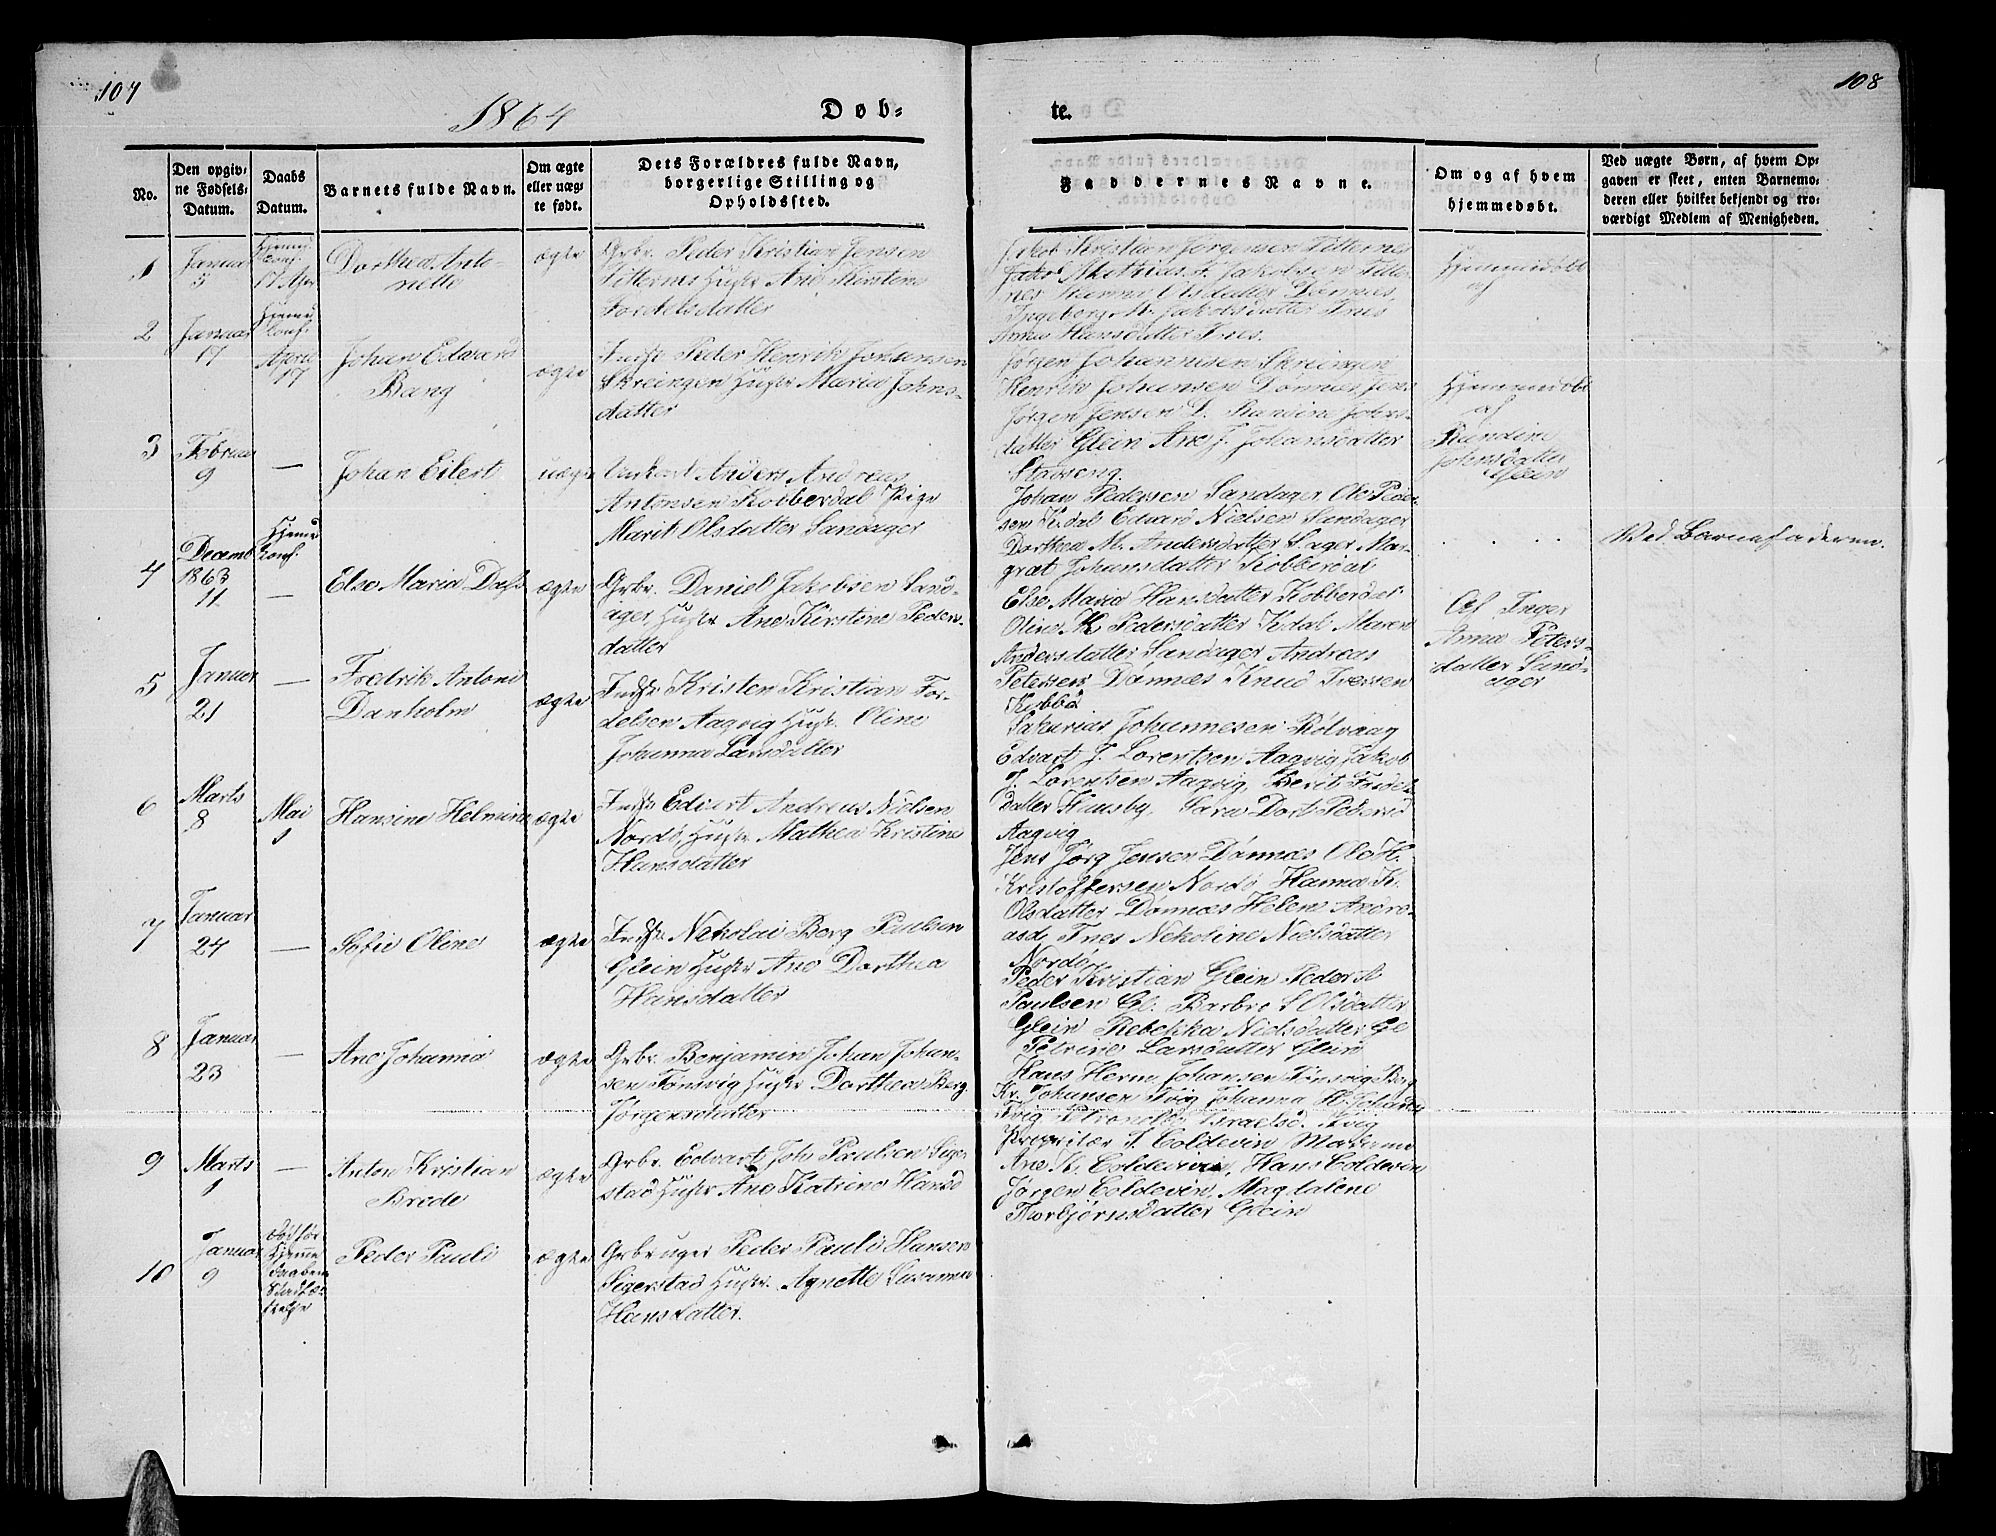 107
1864
Døb=
te.
108
No.
Den opgiv-
ne Fødsels-
Datum.
Daabs
Datum.
Barnets fulde Navn.
Om ægte
eller uæg-
te født.
Dets Forældres fulde Navn,
borgerlige Stilling og
Opholdssted.
Faddernes Navne.
Om og af hvem
hjemmedøbt.
Ved uægte Børn, af hvem Op-
gaven er skeet, enten Barnemo-
deren eller hvilket bekjendt og tro-
værdigt Medlem af Menigheden.
1
Januar
5
17 Apr
Dorthea Anto-
nette
ægte
Grbr. Peder Kristian Jensen
Titternes Hustr Ane Kirstine
Fordelsdatter
Jakob Kristian Jørgensen Titternes
Jakob Mathias F. Jakobsen Titter
nes Hanna Olsdatter Dønnæs,
Ingeborg M. Jakobsdatter Tnes
Anna Hansdatter Tnes.
Hjemmedøbt
af
2
Januar
17
Hjemme
konf.
April
17
Johan Edvard
Bang
ægte
Indst Peder Henrik Jontensen
Skreingen Hustr Maria Johns-
datter
Jørgen Johannesen Skreingen
Henrik Johansen Dønnæs, Jens
Jørgen Jensen D. Randine Johns-
datter Glein Ane J. Johansdatter
Stavseng.
Hjemmedøbt
af
Randine
Johnsdatter
Glein
3
Februar
9
—
Johan Eilert
uægte
Unkarl Anders Andreas
Antonsen Kobberdal Pige
Marit Olsdatter Sandager
Johan Pedersen Sandager, Ole Peder-
sen K.dal Edvard Nielsen Sandager
Dorthea M. Andersdatter S.ager Mar-
gret Johansdatter Kobberdal
. . . .
Ved Barnefaderen.
4
Decemb
1863
11
Hjemme
konf.
—
Else Maria Dass
ægte
Grbr. Daniel Jakobsen Sand-
ager, Hustr Ane Kirstine Peders-
datter
Else Maria Hansdatter Kobberdal
Oline K Pedersdatter K.dal Maren
Andersdatter Sandager Andreas
Petersen Dønnæs Knud Iversen
Kobbd
Af Inger
Anna Peters-
datter Sand-
ager
5
Januar
21
—
Fredrik Antoni
Danholm
ægte
Indst Kristen Kristian For-
delsen Aagvig Hustr. Oline
Johanna Larsdatter
Sakarias Johannesen Rølvaag
Edvart J. Lorentsen Aagvig, Jakob
J. Lorentsen Aagvig, Berit Fordels
datter Hunsby, Sara Dort Pedersd
Aagvig
6
Marts
8
Mai
1
Hansine Helmine
ægte
Indst Edvart Andreas Nielsen
Nordø, Hustr Mathea Kristine
Hansdatter
Jens Jørg Jensen Dønnæs Ole H.
Kristoffersen Nordø Hanna K.
Olsdatter Dønnæs Helene Andre-
asd. Tnes Nekoline Nielsdatter
Nordø
7
Januar
24
—
Sofie Oline
ægte
Indst Nekolai Berg Paulsen
Glein Hustr Ane Dorthea
Hansdatter
Peder Kristian Glein Peder A
Paulsen Gl. Barbro S Olsdatter
Glein Rebekka Nielsdatter, Gl
Petrine Larsdatter Glein
8
Januar
23
—
Ane Johanna
ægte
Grbr. Benjamin Johan Johan-
sen Tømvig Hustr Dorthea Berg
Jørgensdatter
Hans Herm. Johansen Tømvig Berg
Kr. Johansen Tvig Johanna H. Johans
Tvig Petronelle Israelsd. Tvig
9
Marts
1
—
Anton Kristian
Brede
ægte
Grbr. Edvart Joh Paulsen Siger
stad Hustr Ane Katrine Hansd
Proprietær I. Coldevin Madame
Ane K. Coldevin, Hans Coldevin
Jørgen Coldevin, Magdalene
Thorbjørnsdatter Glein
10
Januar
9
Død før
Hjemme
Daaben
Stadfæ-
stelse
Peder Pauli
ægte
Grbruger Peder Pauli Hansen
Sigerstad Hustr. Agnette Susanna
Hansdatter.